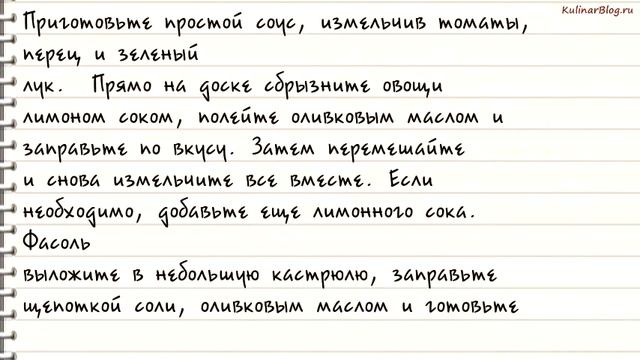 KulinarBlog.ru
Приготовьте простой соус, измельчив томаты,
перец и зеленый
лук. Прямо на доске сбрызните овощи
лимоном соком, полейте оливковым маслом и
заправьте по вкусу. Затем перемешайте
и снова измельчите все вместе. Если
необходимо, добавьте еще лимонного сока.
Фасоль
выложите в небольшую кастрюлю, заправьте
щепоткой соли, оливковым маслом и готовьте